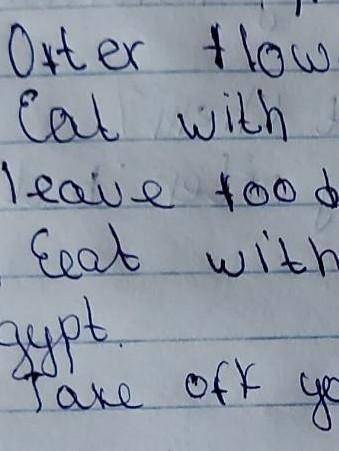 Offer flow
Eat with
leave food
Eeat with
gypt.
Take off yo